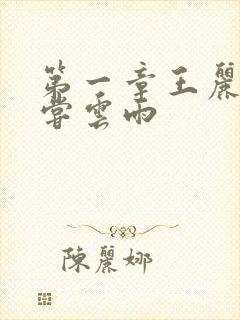 第一章王麗
嘗雲雨
陳麗娜